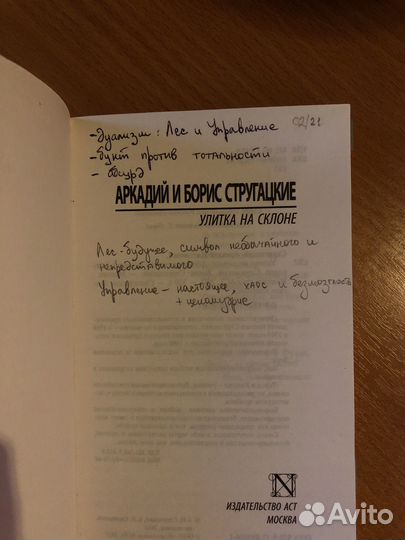 02/21
- Дуализм: Лес и Управление
- Бунт против тотальности
- Абсурд
АРКАДИЙ И БОРИС СТРУГАЦКИЕ
УЛИТКА НА СКЛОНЕ
Лес - будущее, символ необычайного и
непредставимого
Управление - настоящее, хаос и безмозглость
+ цензура
ИЗДАТЕЛЬСТВО АСТ
МОСКВА
Avito